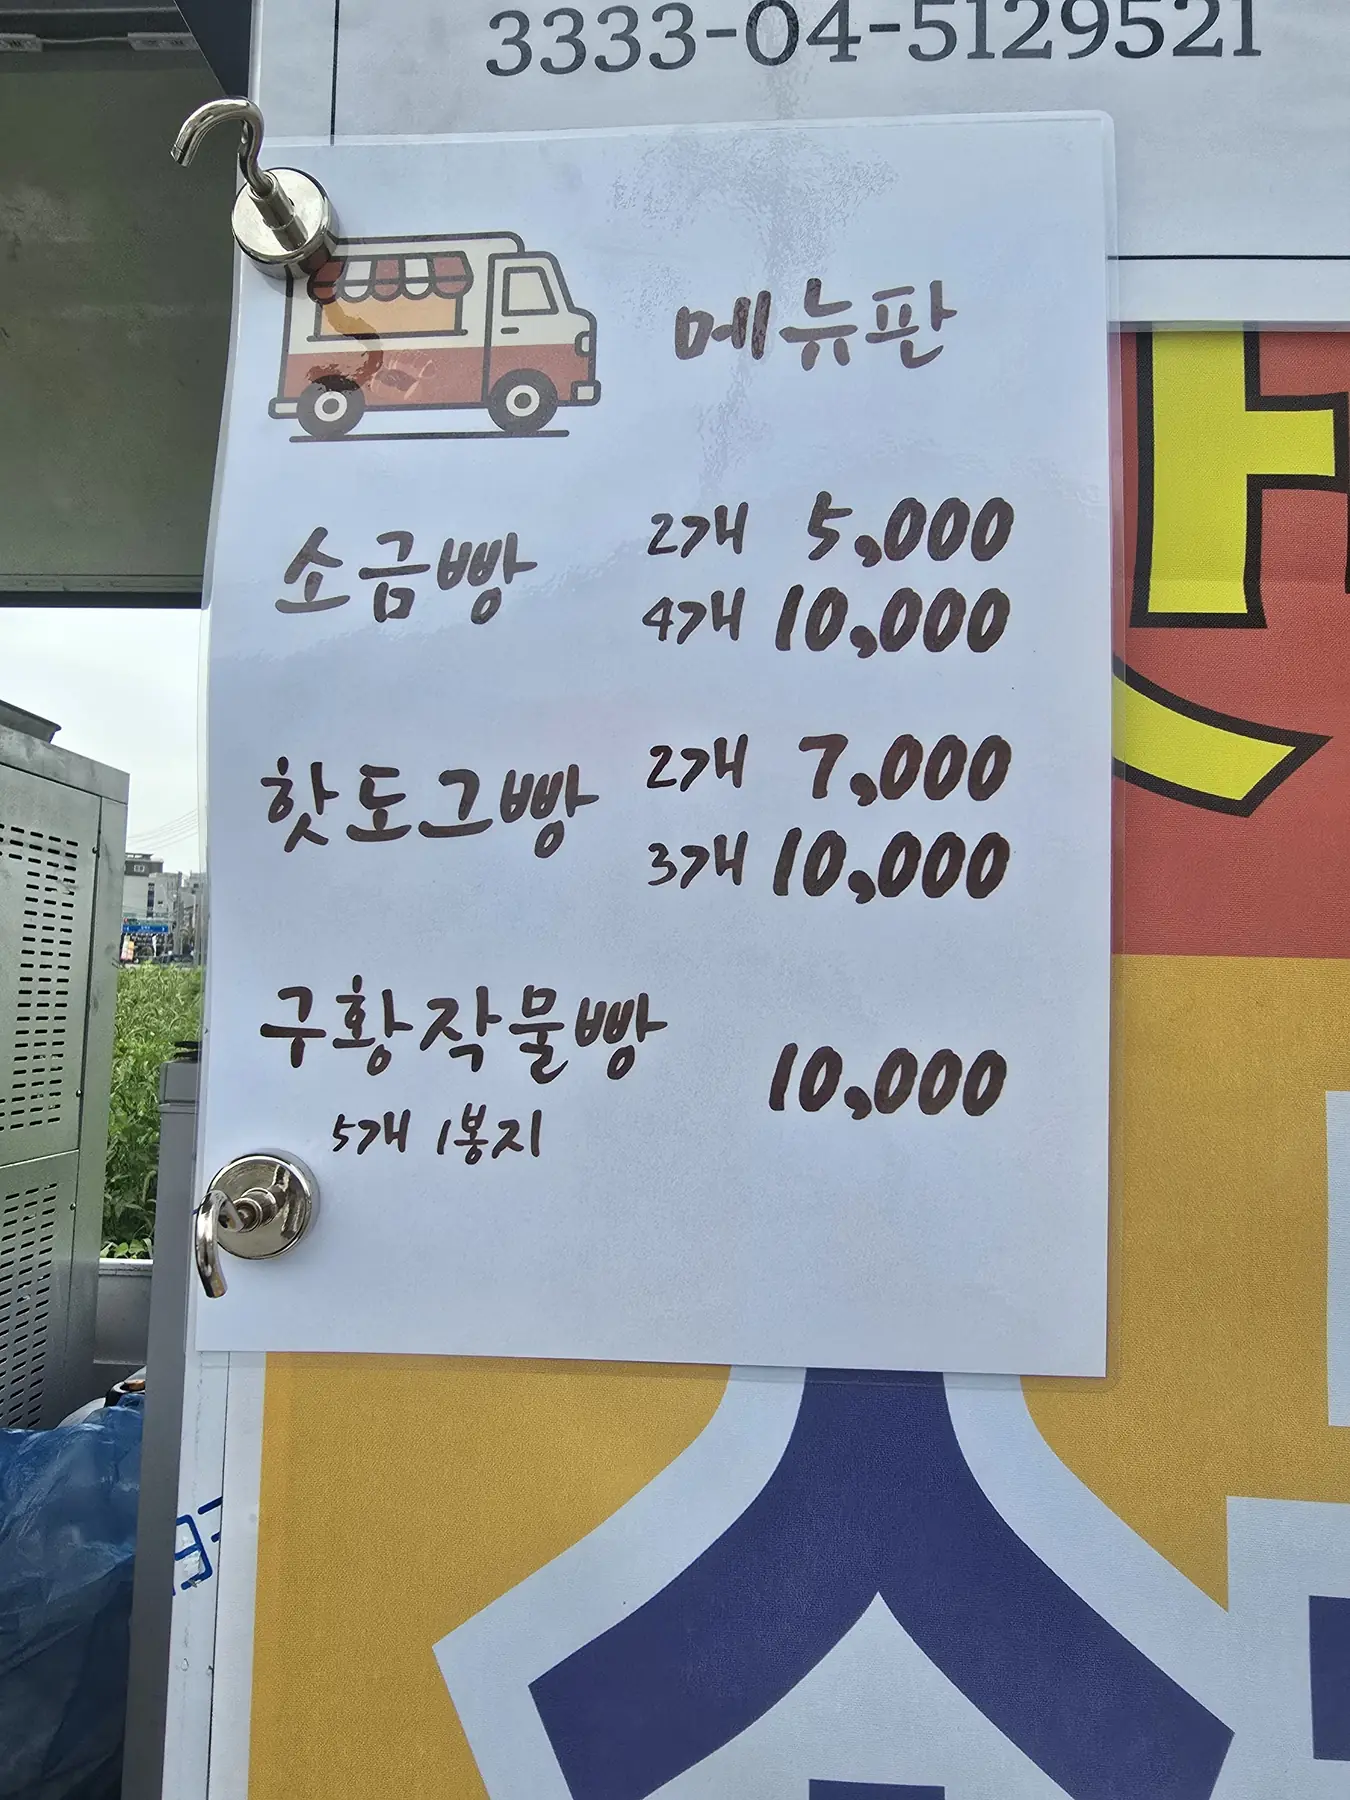 3333-04-5129521
메뉴판
소금빵 2개 5,000
4개 10,000
핫도그빵 2개 7,000
3개 10,000
구황작물빵 10,000
5개 1봉지